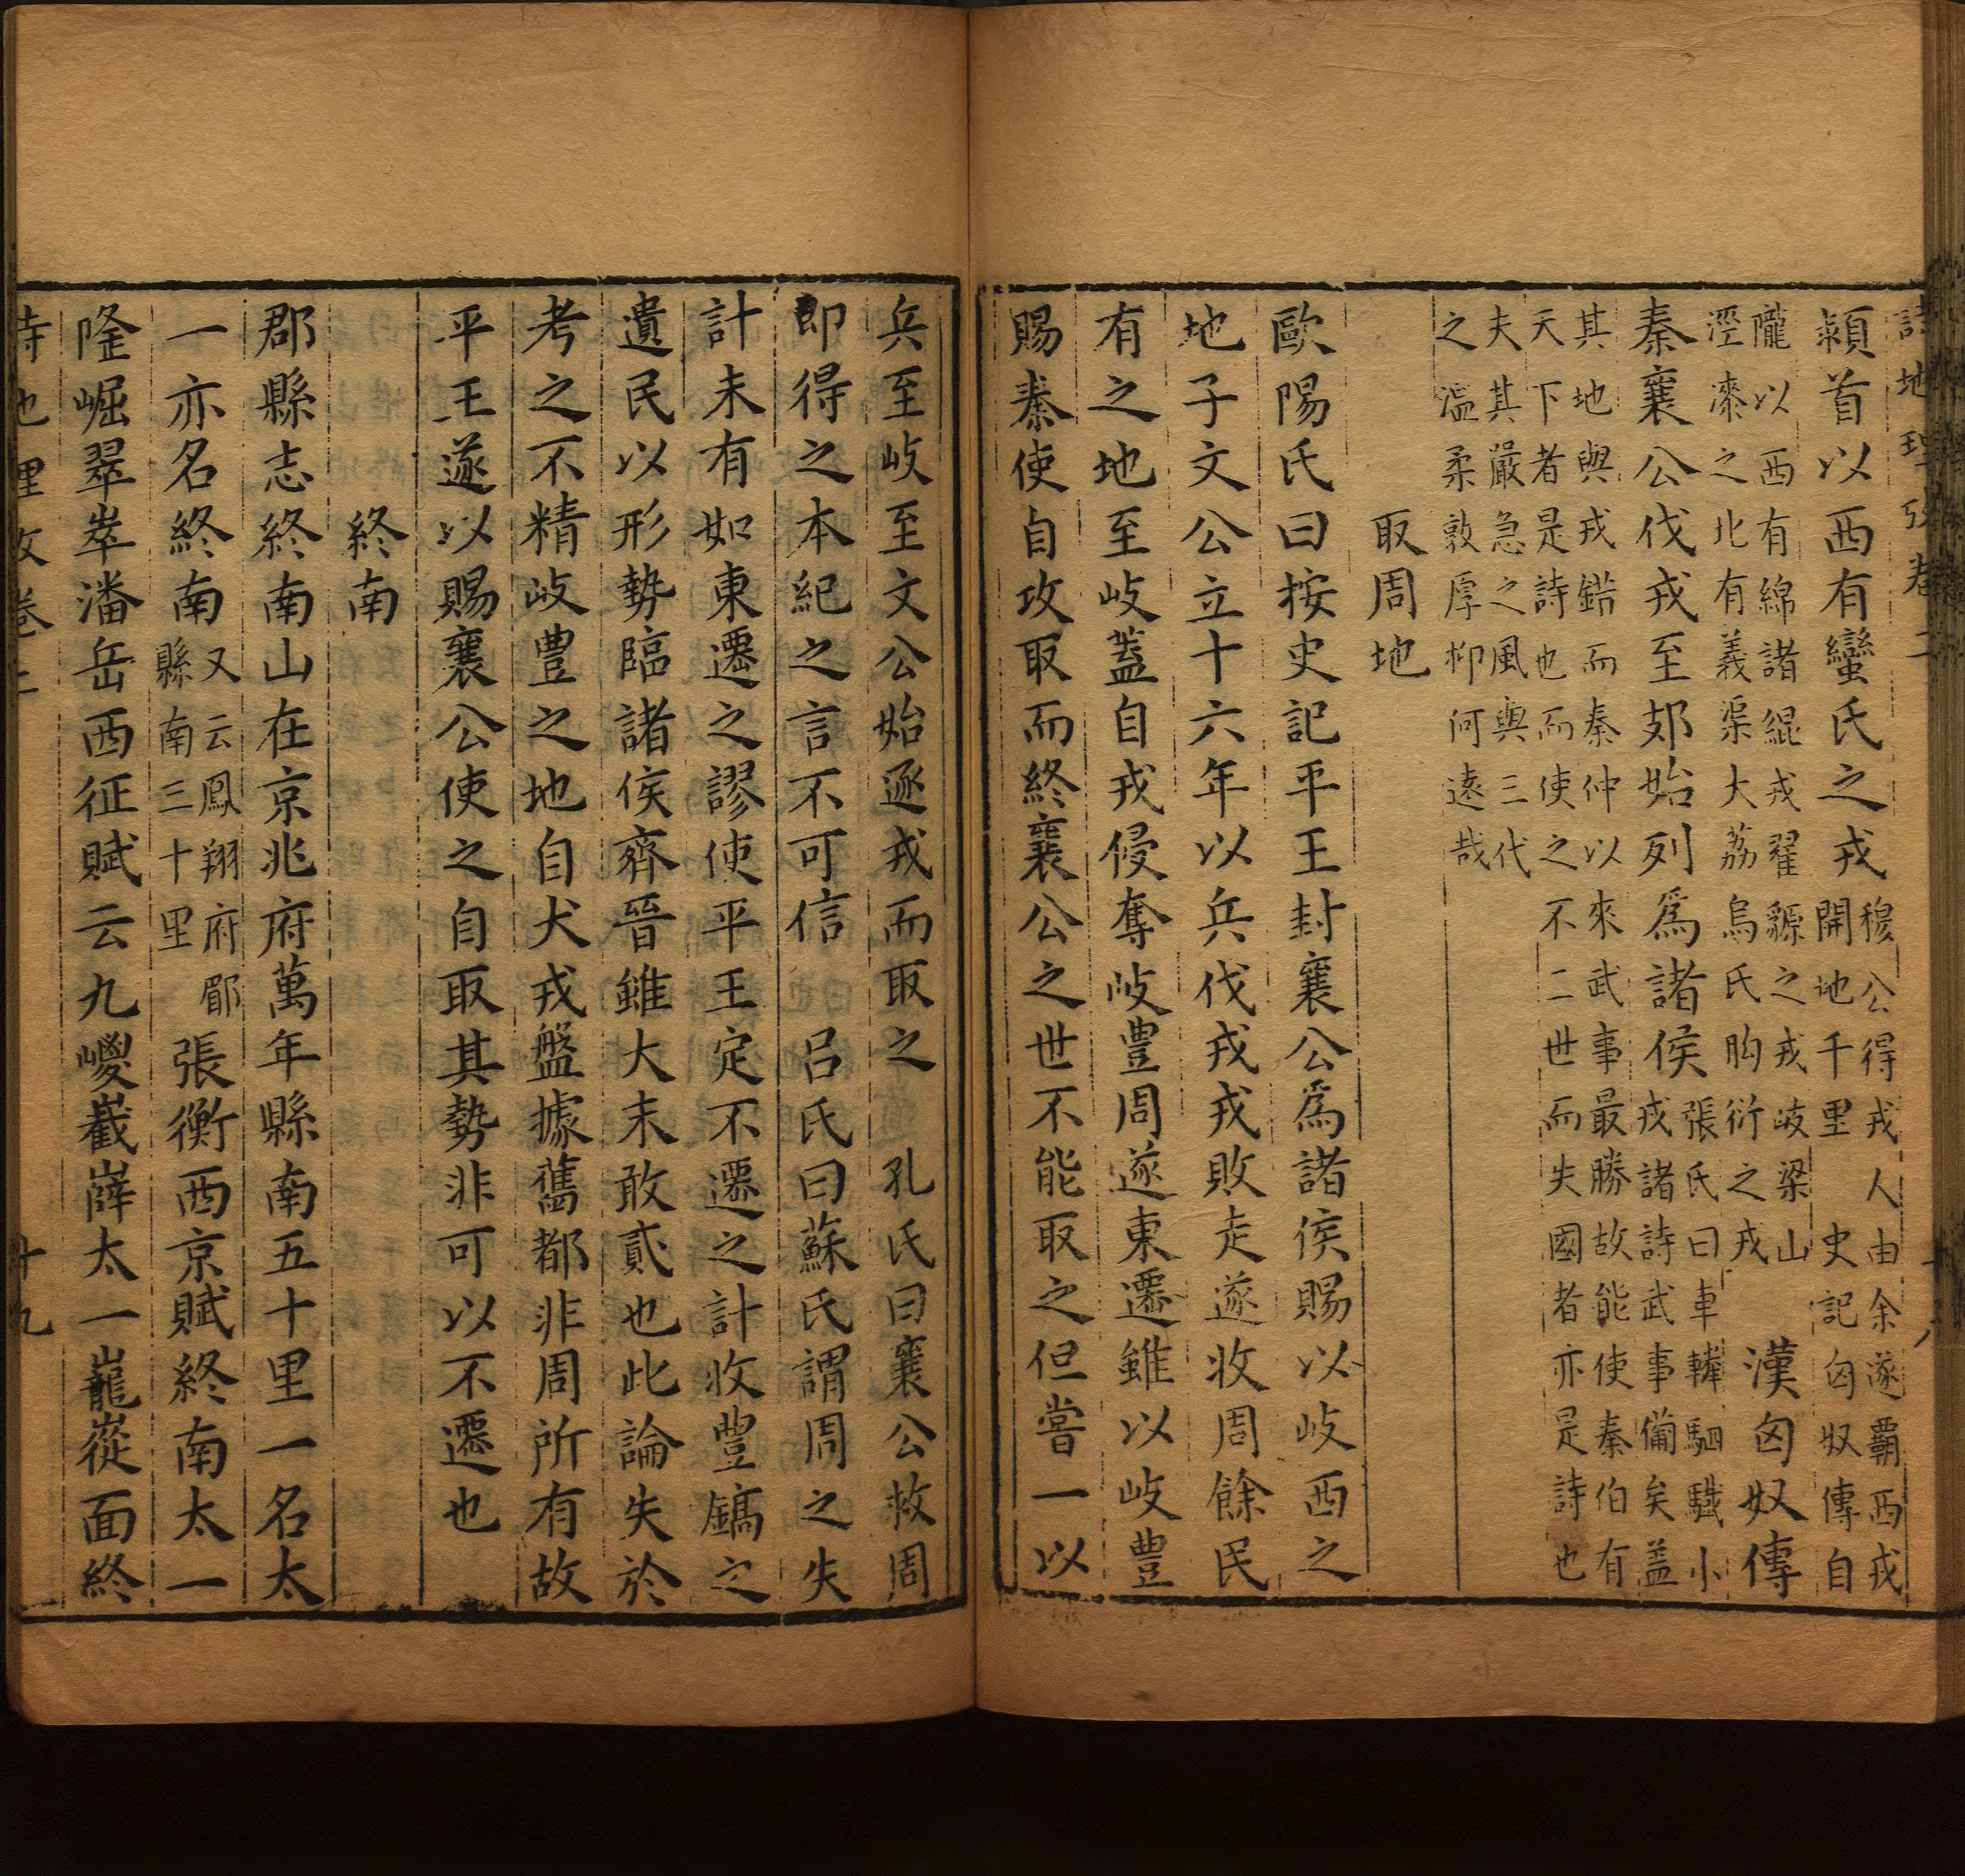 詩地理攷卷二 十八
潁首以西有蠻氏之戎穆公得戎人由余遂霸西戎
開地千里 史記匈奴傳自
隴以西有綿諸緄戎翟獂之戎岐梁山
涇漆之北有義渠大荔烏氏朐衍之戎 漢匈奴傳
秦襄公伐戎至郊始列爲諸侯張氏曰車轔駟驖小
戎諸詩武事備矣盖
其地與戎錯而秦仲以來武事最勝故能使秦伯有
天下者是詩也而使之不二世而失國者亦是詩也
夫其嚴急之風與三代
之溫柔敦厚抑何遠哉
取周地
歐陽氏曰按史記平王封襄公爲諸侯賜以岐西之
地子文公立十六年以兵伐戎戎敗走遂收周餘民
有之地至岐蓋自戎侵奪岐豊周遂東遷雖以岐豊
賜秦使自攻取而終襄公之世不能取之但嘗一以
兵至岐至文公始逐戎而取之 孔氏曰襄公救周
即得之本紀之言不可信 呂氏曰蘇氏謂周之失
計未有如東遷之謬使平王定不遷之計收豊鎬之
遺民以形勢臨諸侯齊晉雖大未敢貳也此論失於
考之不精岐豊之地自犬戎盤據舊都非周所有故
平王遂以賜襄公使之自取其勢非可以不遷也
終南
郡縣志終南山在京兆府萬年縣南五十里一名太
一亦名終南又云鳳翔府郿
縣南三十里張衡西京賦終南太一
隆崛翠崒潘岳西征賦云九嵕巀嶭太一巃嵸面終
詩地理攷卷二 十九